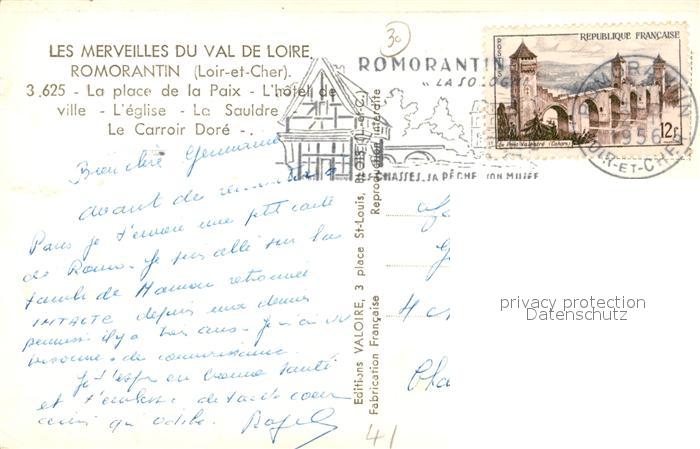 30
LES MERVEILLES DU VAL DE LOIRE
ROMORANTIN (Loir-et-Cher).
3.625 - La place de la Paix - L'hôtel de
ville - L'église - La Sauldre
Le Carroir Doré -.
Bien chère Germaine
avant de remonter à
Paris je t'envoie une petite carte
de Romo. Je suis allé sur la
tombe de Maman retrouvée
INTACTE depuis ma dernière
il y a trois ans. Je n'ai vu
personne de connaissance.
Je t'espère en bonne santé
et t'embrasse de tout coeur
ainsi qu'
Editions VALOIRE, 3 place St-Louis, BLOIS (L.-et-C.)
Fabrication Française
Reproduction interdite
41
ROMORANTIN
LA SOLOGNE
SES CHASSES. SA PÊCHE. SON MUSÉE
POSTES
REPUBLIQUE FRANÇAISE
12F
Le Pont Valentré (Cahors)
ROMORANTIN
1956
LOIR-ET-CHER
4
Cha
privacy protection
Datenschutz